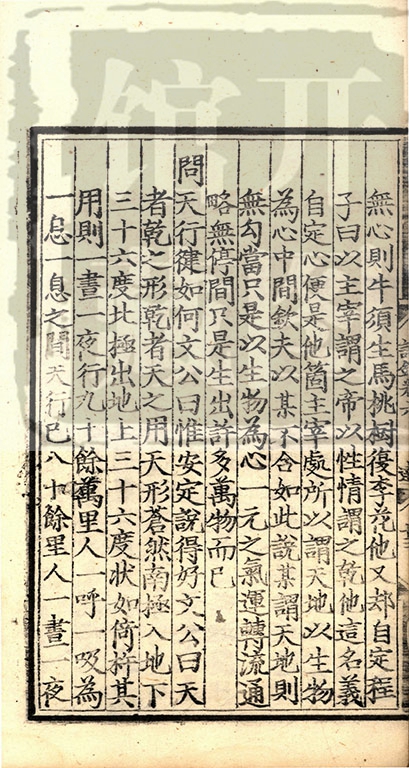 無心則牛須生馬桃樹復李花他又却自定程
子曰以主宰謂之帝以性情謂之乾他這名義
自定心便是他箇主宰處所以謂天地以生物
為心中間欽夫以某不合如此說某謂天地則
無勾當只是以生物為心一元之氣運轉流通
略無停間只是生出許多萬物而已
問天行健如何文公曰惟安定說得好文公曰天
者乾之形乾者天之用天形蒼然南極入地下
三十六度北極出地上三十六度狀如倚杵其
用則一晝一夜行九十餘萬里人一呼一吸為
一息一息之間天行已八十餘里人一晝一夜